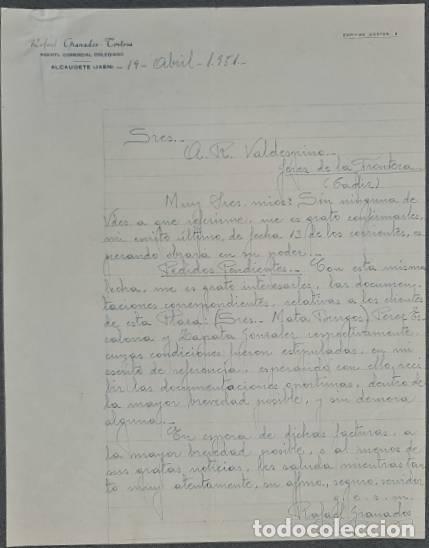 Rafael Granados Tortosa
AGENTE COMERCIAL COLEGIADO
ALCAUDETE (JAEN) 19 - Abril - 1.951.-
Sres.-
A. R. Valdespino.-
Jerez de la Frontera
(Cadiz)
Muy Sres. mios: Sin ninguna de
Vdes. a que referirme, me es grato confirmarles,
mi escrito último, de fecha 13/ de los corrientes, es
perando obrará en su poder.-
Pedidos Pendientes.- Con esta misma
fecha, me es grato interesarles, las documen-
taciones correspondientes, relativas a los clientes
de esta Plaza: (Sres. Mata Burgos) Pérez Es
colona y Zapata Gonzalez respectivamente,
cuyas condiciones fueron estipuladas, en mi
escrito de referencia, esperando con ello, reci
bir las documentaciones oportunas, dentro de
la mayor brevedad posible, y sin demora
alguna.-
En espera de dichas facturas, a
la mayor brevedad posible, o al menos de
sus gratas noticias, les saluda mientras tan
to muy atentamente, su affmo. seguro servidor
q. e. s. m.
Rafael Granados
todocoleccion
todocoleccion.net